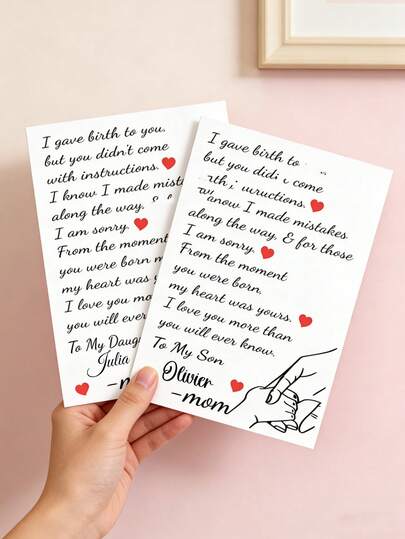 I gave birth to you,
but you didn't come
with instructions.
I know I made mistak
along the way, &
I am sorry.
From the moment
you were born
my heart was yours.
I love you mo
you will ever
To My Daug
Julia
I gave birth to
but you did come
I made mistakes
along the way, & for those
I am sorry.
From the moment
you were born.
my heart was yours.
I love you more than
you will ever know.
To My Son
Olivier
-mom